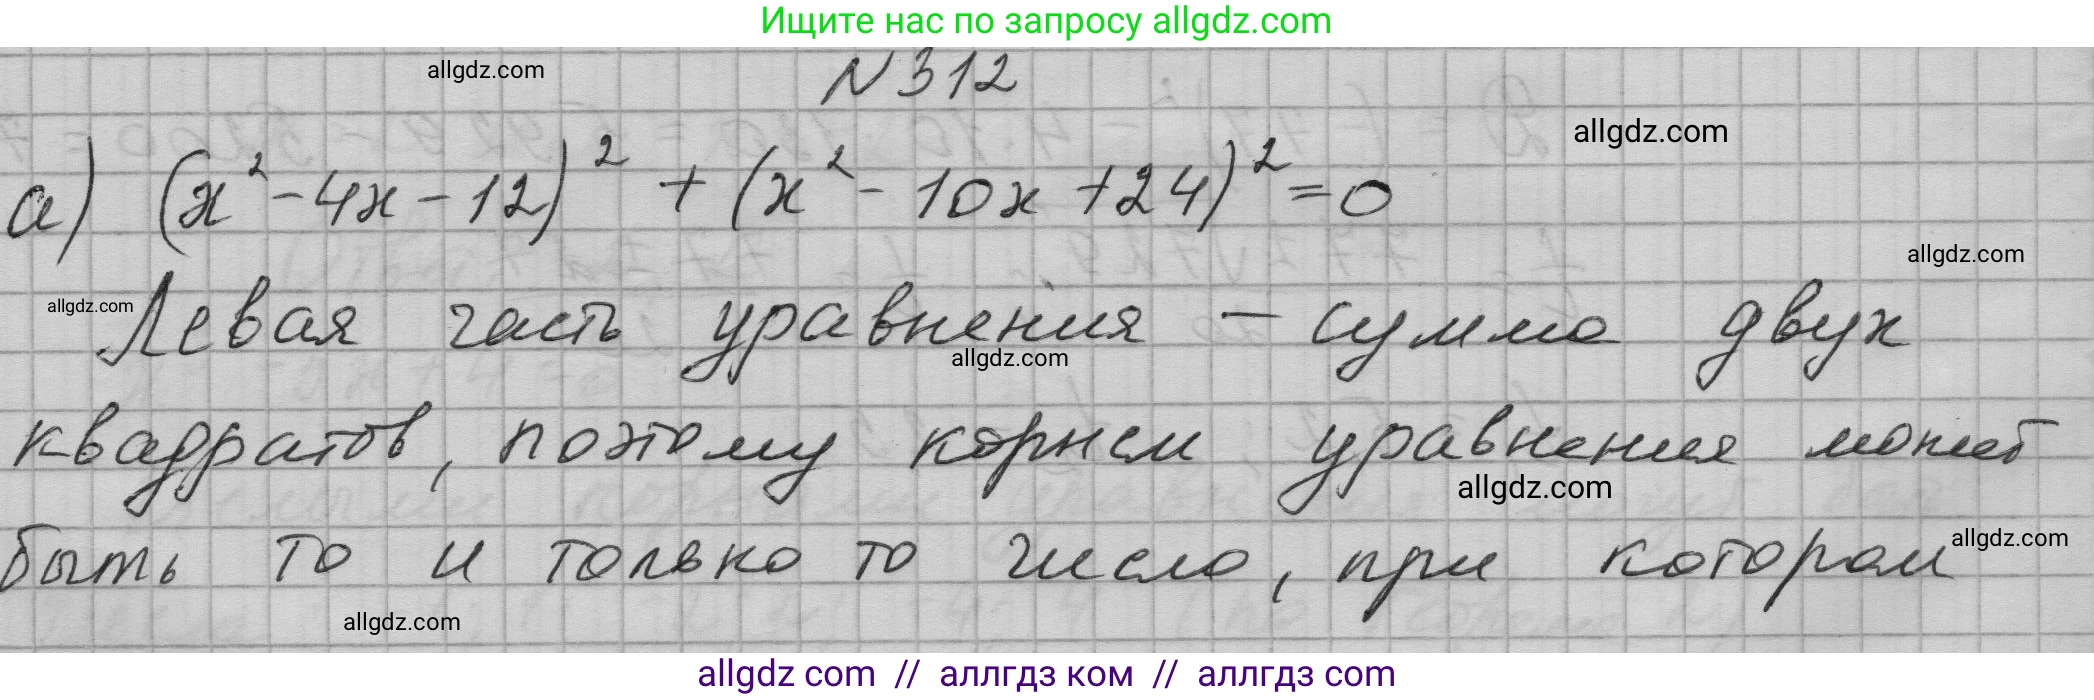 Ищите нас по запросу allgdz.com
allgdz.com
N 312
allgdz.com
а) (x² - 4x - 12)² + (x² - 10x + 24)² = 0
allgdz.com
allgdz.com
Левая часть уравнения – сумма двух
allgdz.com
квадратов, поэтому корнем уравнения может
allgdz.com
быть то и только то число, при котором
allgdz.com
allgdz.com
allgdz com // аллгдз ком // аллгдз com